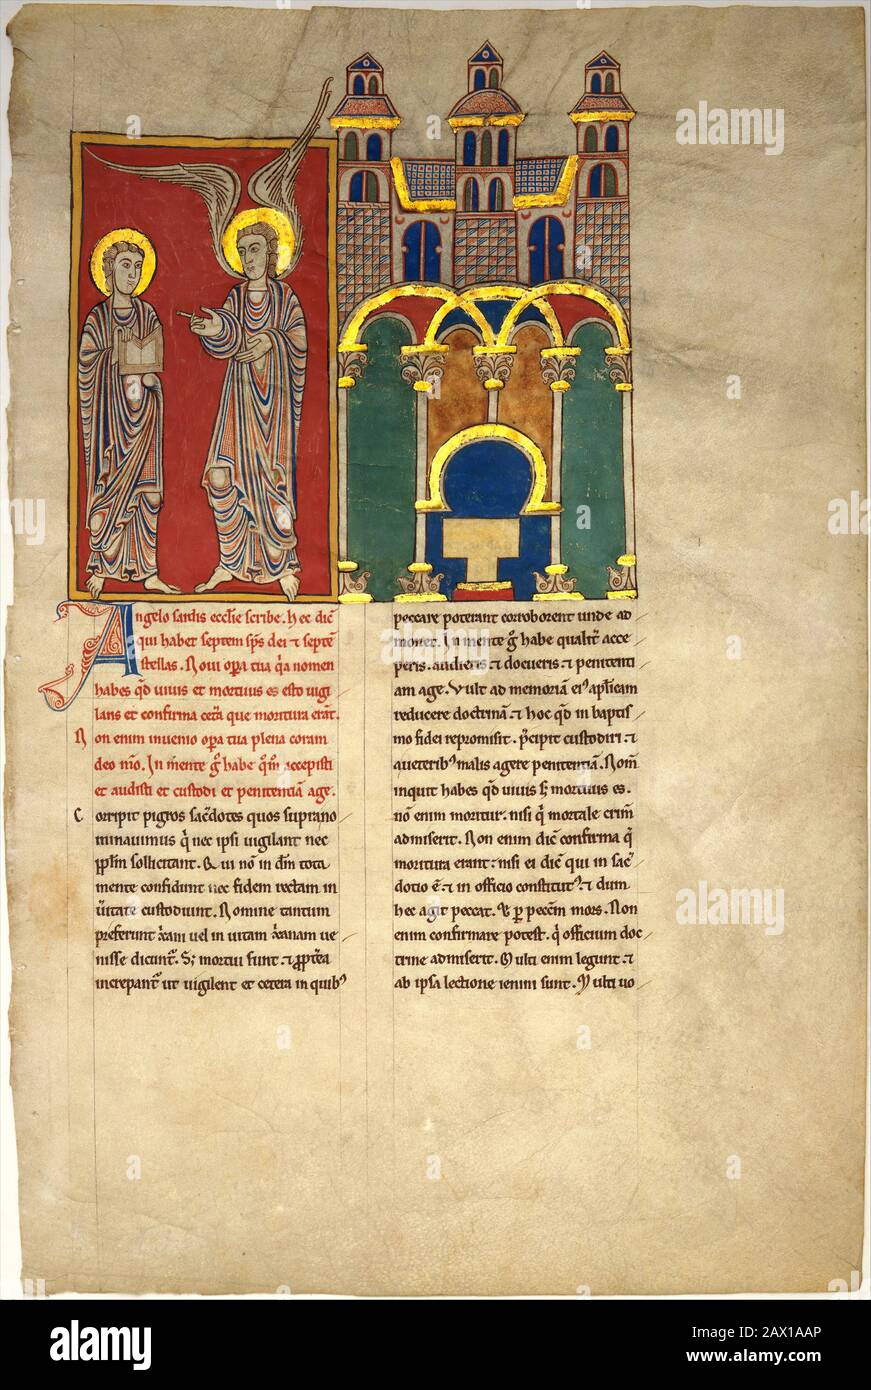 Angelo sardis ecclīe scribe. hec dic̄
qui habet septem sp̄s dei ⁊ septē
stellas. Noui op̄a tua q̄a nomen
habes qd̄ uiuis et mortuus es esto uigi
lans et confirma cet̄a que moritura erāt.
Non enim inuenio op̄a tua plena coram
deo m̄o. In mente g̊ habe q̄m̄ accepisti
et audisti et custodi et penitentiā age.
Corripit pigros sac̄dotes quos suprano
minauimus q̄ nec ipsi uigilant nec
pp̄lm̄ sollicitant. Qui nō in dm̄ tota
mente confidunt nec fidem rectam in
ūitate custodiunt. Nomine tantum
preferunt x̄am uel in uitam x̄anam ue
nisse dicunt̄. S; mortui sunt ⁊ pp̄t̄ea
increpant̄ ut uigilent et cetera in quibꝰ
peccare poterant corroborent unde ad
monet. In mente g̊ habe qualit̄ acce
peris. audieris ⁊ docueris ⁊ penitenti
am age. Vult ad memoriā eiꝰ apl̄icam
reducere doctrinā ⁊ hoc qd̄ in baptis
mo fidei repromisit. p̄cipit custodiri ⁊
a ueteribꝰ malis agere penitentiā. Nom̄
inquit habes qd̄ uiuis s; mortuus es.
nō enim moritur. nisi q̄ mortale crim̄
admiserit. Non enim dic̄ confirma q̄
moritura erant: nisi ei dic̄ qui in sac̄
dotio ē ⁊ in officio constitutꝰ ⁊ dum
hec agit peccat. & p̄ pecc̄m mors. Non
enim confirmare potest. q̄ officium doc
trine admiserit. Multi enim legunt ⁊
ab ipsa lectione ieiuni sunt. Multi uo
alamy
alamy
alamy
Image ID: 2AX1AAP
www.alamy.com